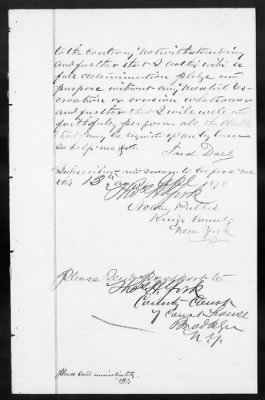 to the contrary notwithstanding
and further that I do this with a
full determination pledge and
purpose without any mental res-
ervation or evasion whatsoever
and further that I will well and
faithfully perform all the duties
that may be required of me by law
so help me God.
Subscribed and sworn to before me
this 13th day
York
Notary Public
Kings County
New York
Please send passport to
Thos. H. York
County
Court House
Brooklyn
N.Y.
Please send immediately.